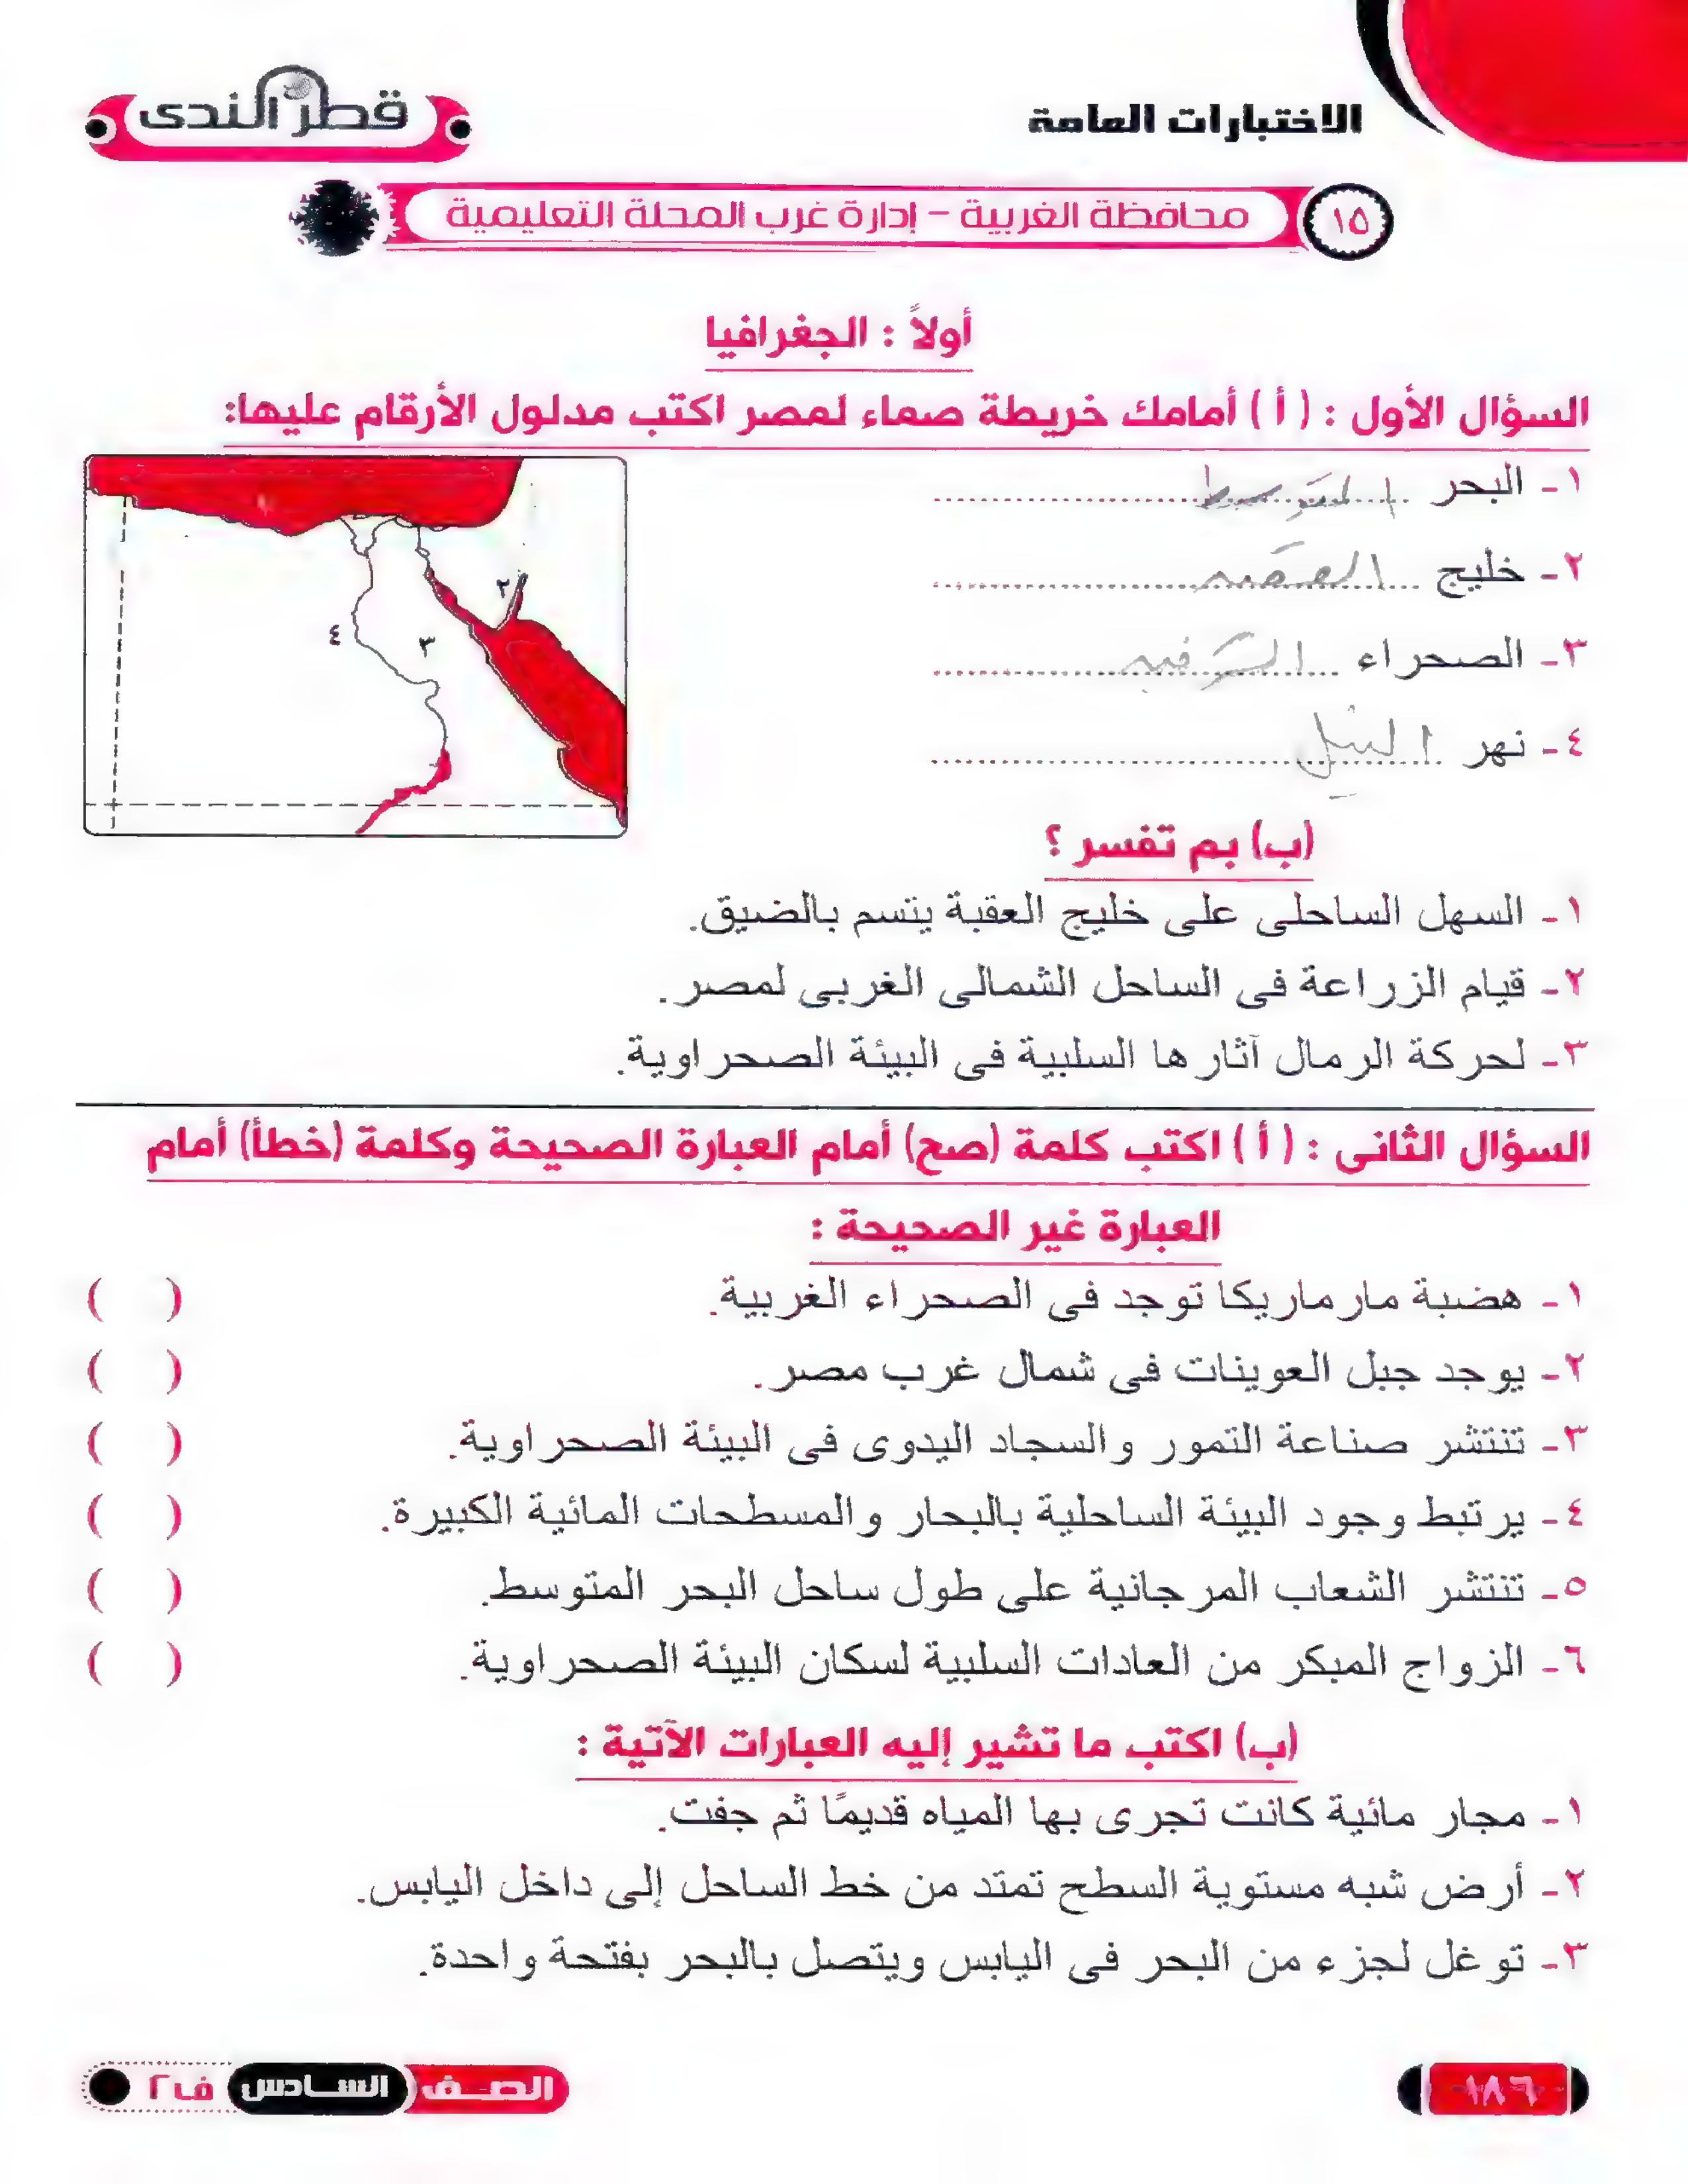 الاختبارات العامة
قطر الندى
١٥ محافظة الغربية - إدارة غرب المحلة التعليمية
أولاً : الجغرافيا
السؤال الأول : ( أ ) أمامك خريطة صماء لمصر اكتب مدلول الأرقام عليها:
١- البحر المتوسط
٢- خليج العقبه
٣- الصحراء الشرقيه
٤- نهر النيل
٢
٣
٤
(ب) بم تفسر ؟
١- السهل الساحلى على خليج العقبة يتسم بالضيق.
٢- قيام الزراعة فى الساحل الشمالى الغربى لمصر.
٣- لحركة الرمال آثارها السلبية فى البيئة الصحراوية.
السؤال الثانى : ( أ ) اكتب كلمة (صح) أمام العبارة الصحيحة وكلمة (خطأ) أمام
العبارة غير الصحيحة :
١- هضبة مارماريكا توجد فى الصحراء الغربية. ( )
٢- يوجد جبل العوينات فى شمال غرب مصر. ( )
٣- تنتشر صناعة التمور والسجاد اليدوى فى البيئة الصحراوية. ( )
٤- يرتبط وجود البيئة الساحلية بالبحار والمسطحات المائية الكبيرة. ( )
٥- تنتشر الشعاب المرجانية على طول ساحل البحر المتوسط. ( )
٦- الزواج المبكر من العادات السلبية لسكان البيئة الصحراوية. ( )
(ب) اكتب ما تشير إليه العبارات الآتية :
١- مجار مائية كانت تجرى بها المياه قديمًا ثم جفت.
٢- أرض شبه مستوية السطح تمتد من خط الساحل إلى داخل اليابس.
٣- توغل لجزء من البحر فى اليابس ويتصل بالبحر بفتحة واحدة.
١٨٦
الصف السادس ف٢